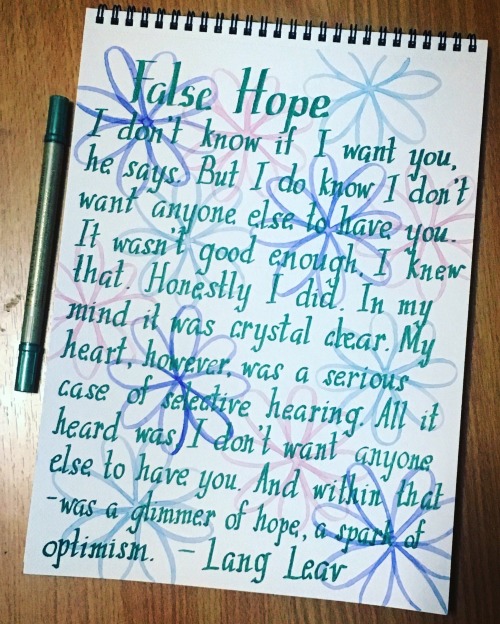 False Hope
I don't know if I want you,
he says. But I do know I don't
want anyone else to have you.
It wasn't good enough, I knew
that. Honestly I did. In my
mind it was crystal clear. My
heart, however, was a serious
case of selective hearing. All it
heard was, I don't want anyone
else to have you. And within that
-was a glimmer of hope, a spark of
optimism. - Lang Leav